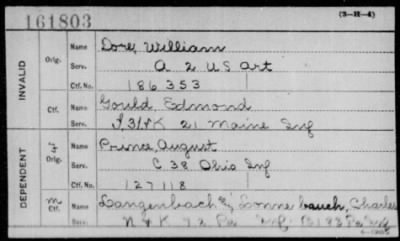 161803
(3-H-4)
INVALID
Orig.
Name Dore, William
Serv. A 2 US Art
Ctf. No. 186353
Ctf.
Name Gould, Edmond
Serv. 21 Maine Inf
DEPENDENT
Orig.
Name Prince, August
Serv. C 38 Ohio Inf
Ctf. No. 127118
Ctf.
Name Langenbach Charles
Serv. 72 Pa Inf. Pa